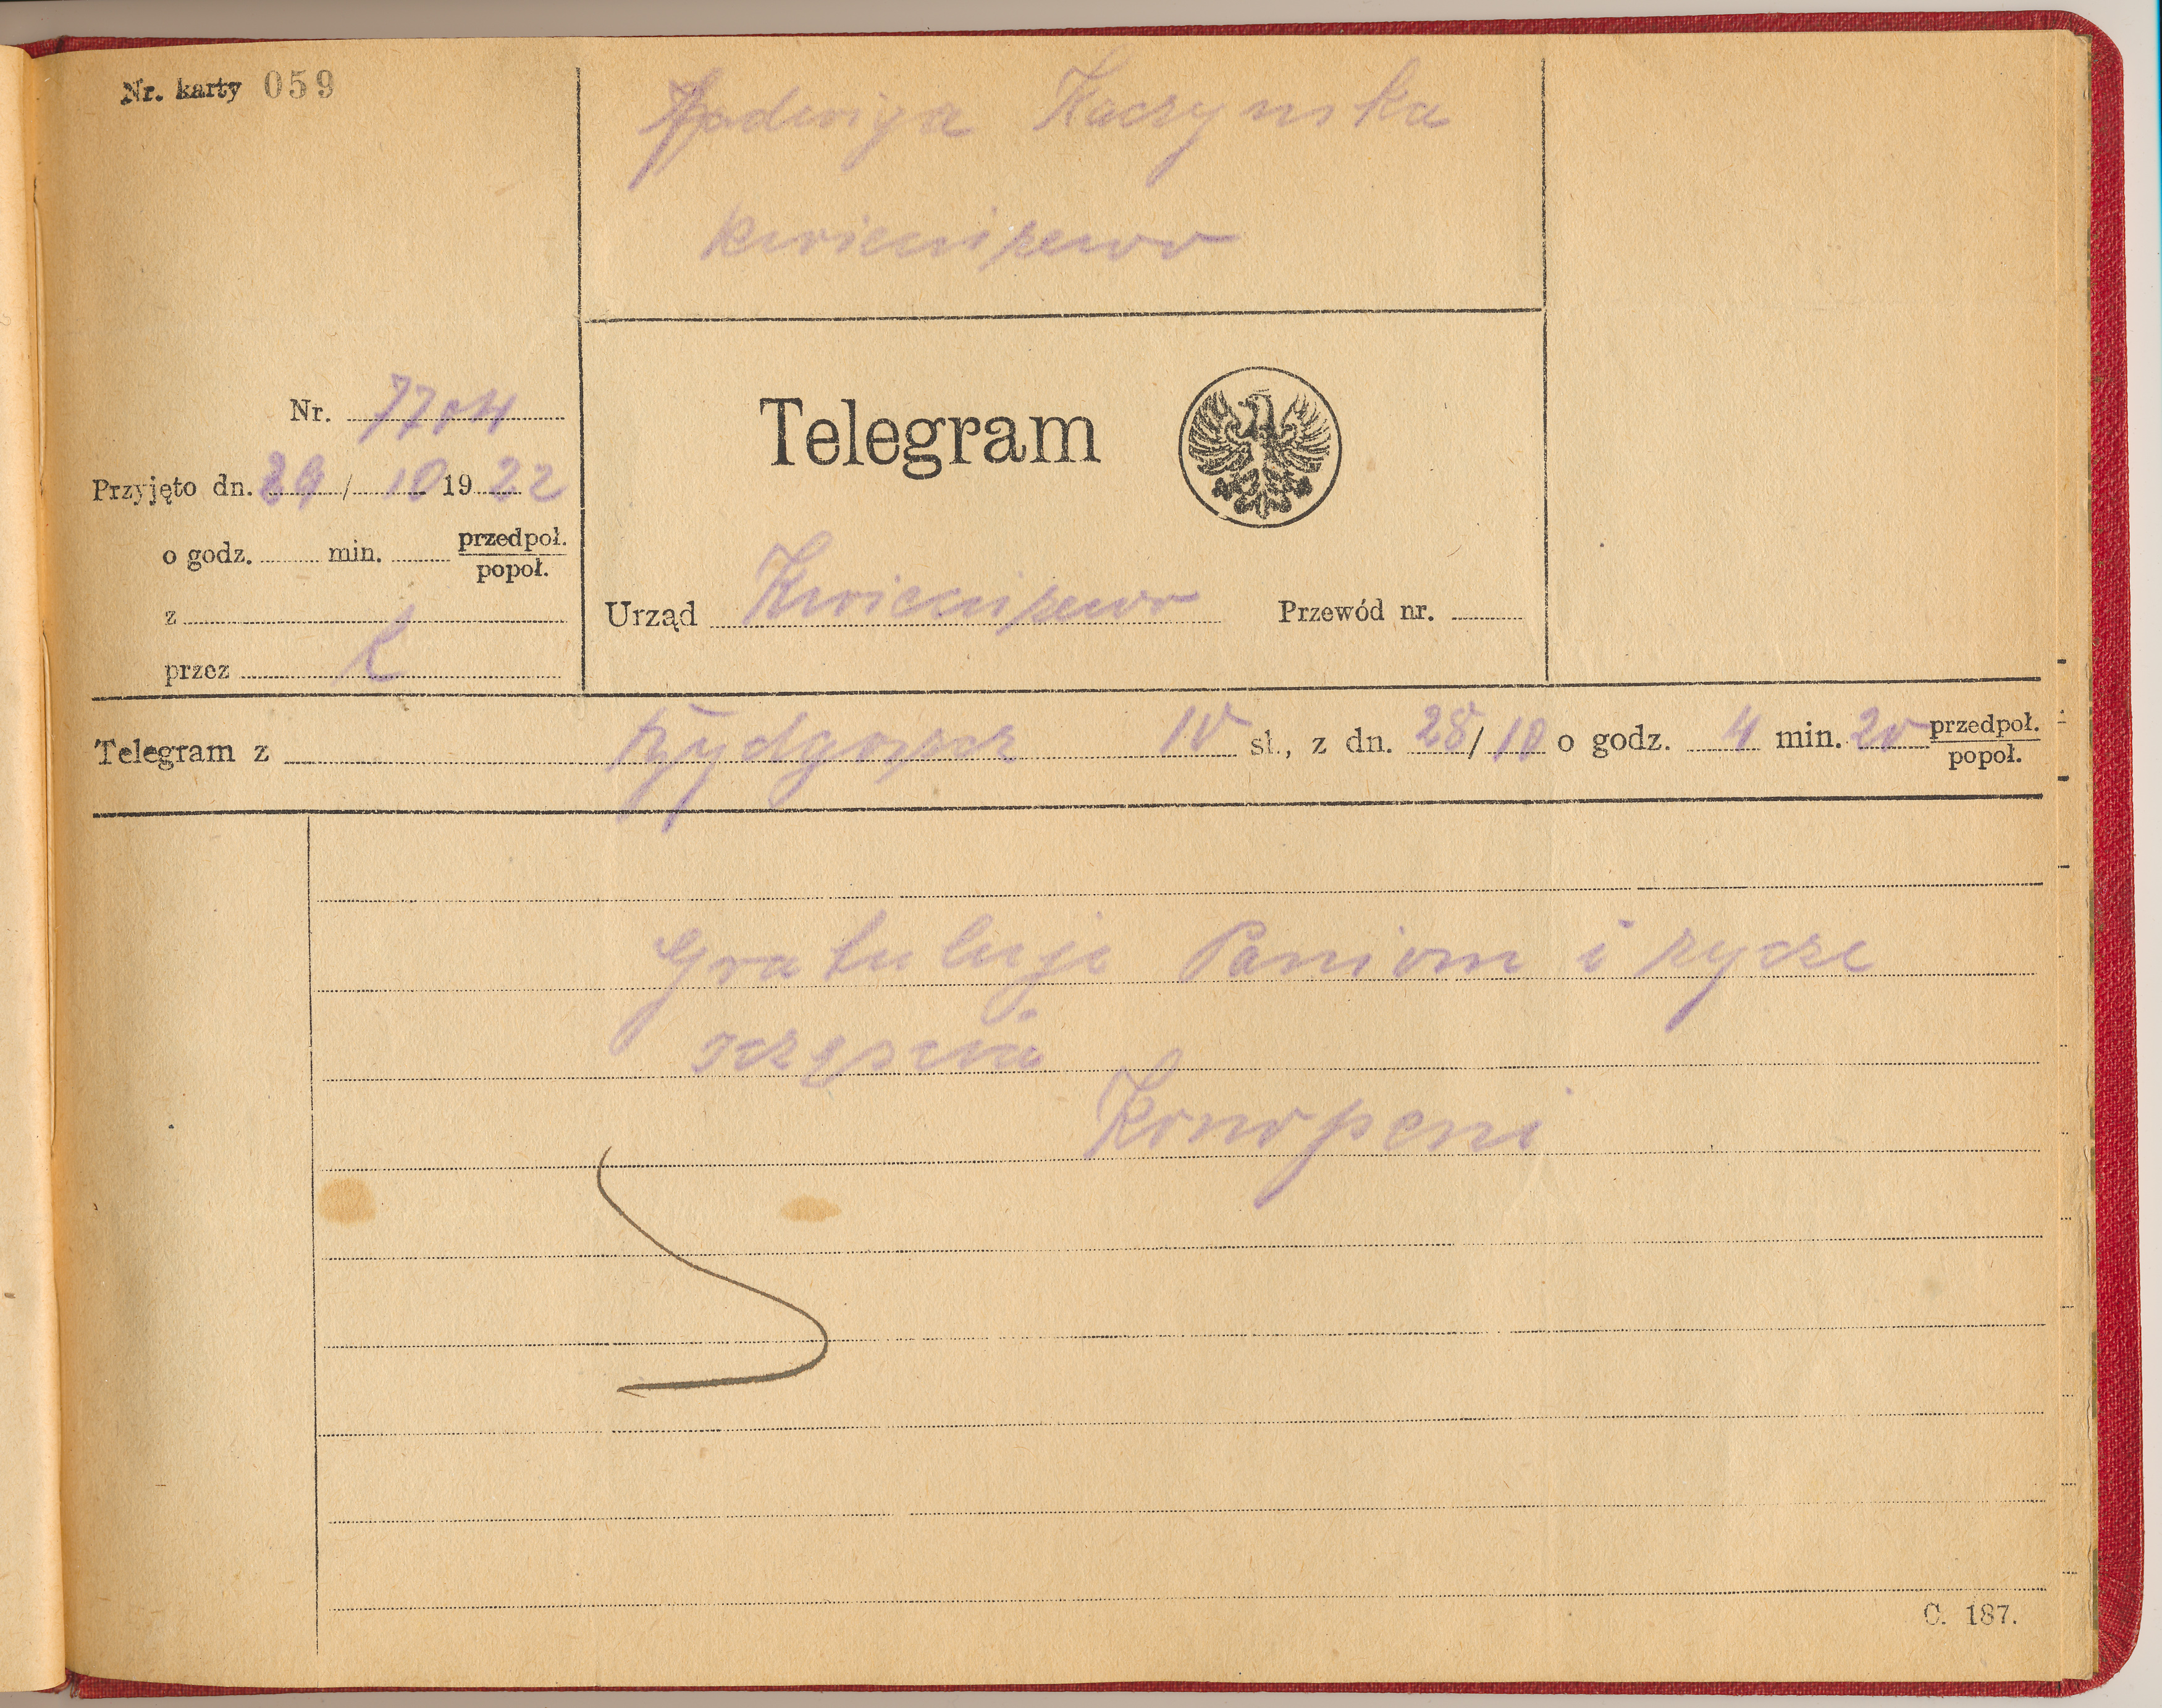 Nr. karty 059
Jadwiga Kaczynska
Kwieciszewo
Nr. 7704
Telegram
Przyjęto dn. 29 / 10 1922
o godz. min. przedpoł.
popoł.
z
Urząd Kwieciszewo Przewód nr.
przez
Telegram z Bydgoszcz 10 sł., z dn. 28/10 o godz. 4 min. 20 przedpoł.
popoł.
Gratuluje Paniom i zycze
szczęscia
C. 187.